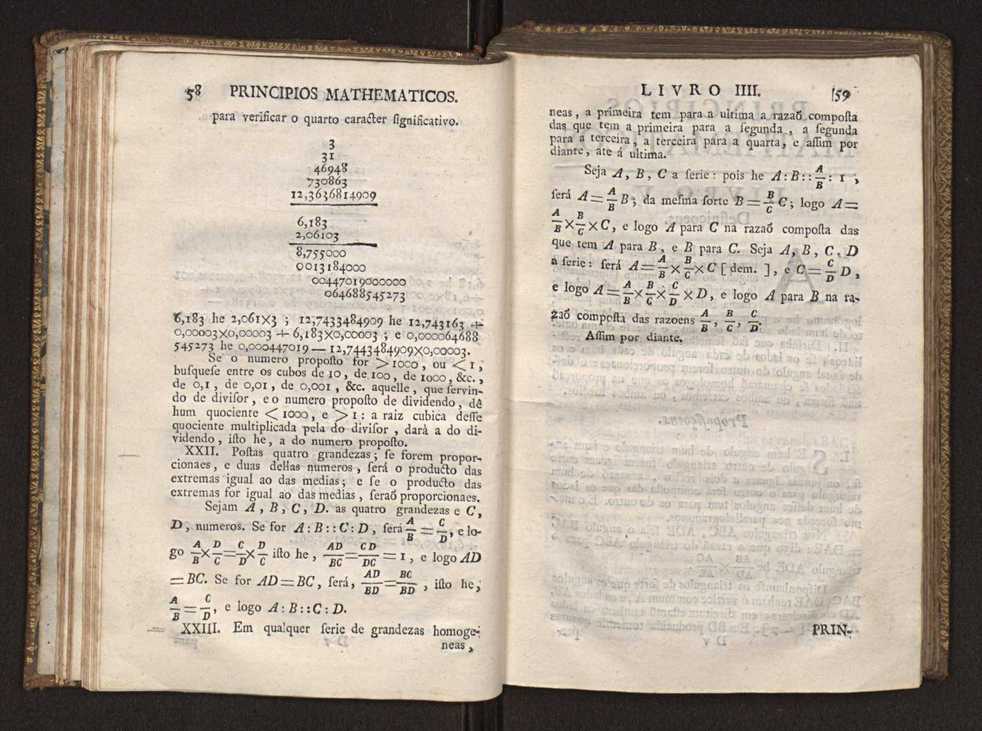 58 PRINCIPIOS MATHEMATICOS.
para verificar o quarto caracter significativo.
3
31
46948
730863
12,3636814909
6,183
2,06103
8,755000
0013184000
00447019000000
064688545273
6,183 he 2,061×3 ; 12,7433484909 he 12,743163 +
0,00003×0,00003 + 6,183×0,00003 ; e 0,000064688
545273 he 0,000447019 — 12,7443484909×0,00003.
Se o numero proposto for > 1000, ou < 1,
busquese entre os cubos de 10, de 100, de 1000, &c.,
de 0,1, de 0,01, de 0,001, &c. aquelle, que servin-
do de divisor, e o numero proposto de dividendo, dê
hum quociente < 1000, e > 1 : a raiz cubica desse
quociente multiplicada pela do divisor, dará a do di-
videndo, isto he, a do numero proposto.
XXII. Postas quatro grandezas; se forem propor-
cionaes, e duas dellas numeros, será o producto das
extremas igual ao das medias; e se o producto das
extremas for igual ao das medias, seraõ proporcionaes.
Sejam A, B, C, D. as quatro grandezas e C,
D, numeros. Se for A : B :: C : D, será A/B = C/D, e lo-
go A/B × D/C = C/D × D/C isto he, AD/BC = CD/DC = 1, e logo AD
= BC. Se for AD = BC, será, AD/BD = BC/BD, isto he,
A/B = C/D, e logo A : B :: C : D.
XXIII. Em qualquer serie de grandezas homoge-
neas,
LIVRO IIII. 59
neas, a primeira tem para a ultima a razaõ composta
das que tem a primeira para a segunda, a segunda
para a terceira, a terceira para a quarta, e assim por
diante, até á ultima.
Seja A, B, C a serie: pois he A : B :: A/B : 1,
será A = A/B B; da mesma sorte B = B/C C; logo A =
A/B × B/C × C, e logo A para C na razaõ composta das
que tem A para B, e B para C. Seja A, B, C, D
a serie: será A = A/B × B/C × C [ dem. ], e C = C/D D,
e logo A = A/B × B/C × C/D × D, e logo A para B na ra-
zaõ composta das razoens A/B, B/C, C/D.
Assim por diante.
PRIN-